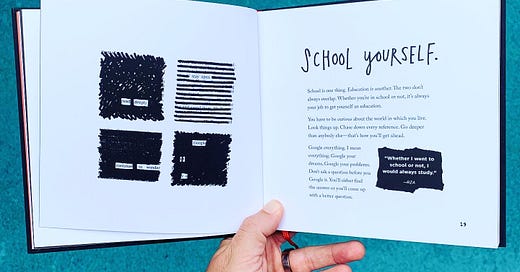 continue to wonder
Google
SCHOOL YOURSELF.
School is one thing. Education is another. The two don't
always overlap. Whether you're in school or not, it's always
your job to get yourself an education.
You have to be curious about the world in which you live.
Look things up. Chase down every reference. Go deeper
than anybody else—that's how you'll get ahead.
Google everything. I mean
everything. Google your
dreams, Google your problems.
Don't ask a question before you
Google it. You'll either find
the answer or you'll come up
with a better question.
"Whether I went to
school or not, I
would always study."
—RZA
19